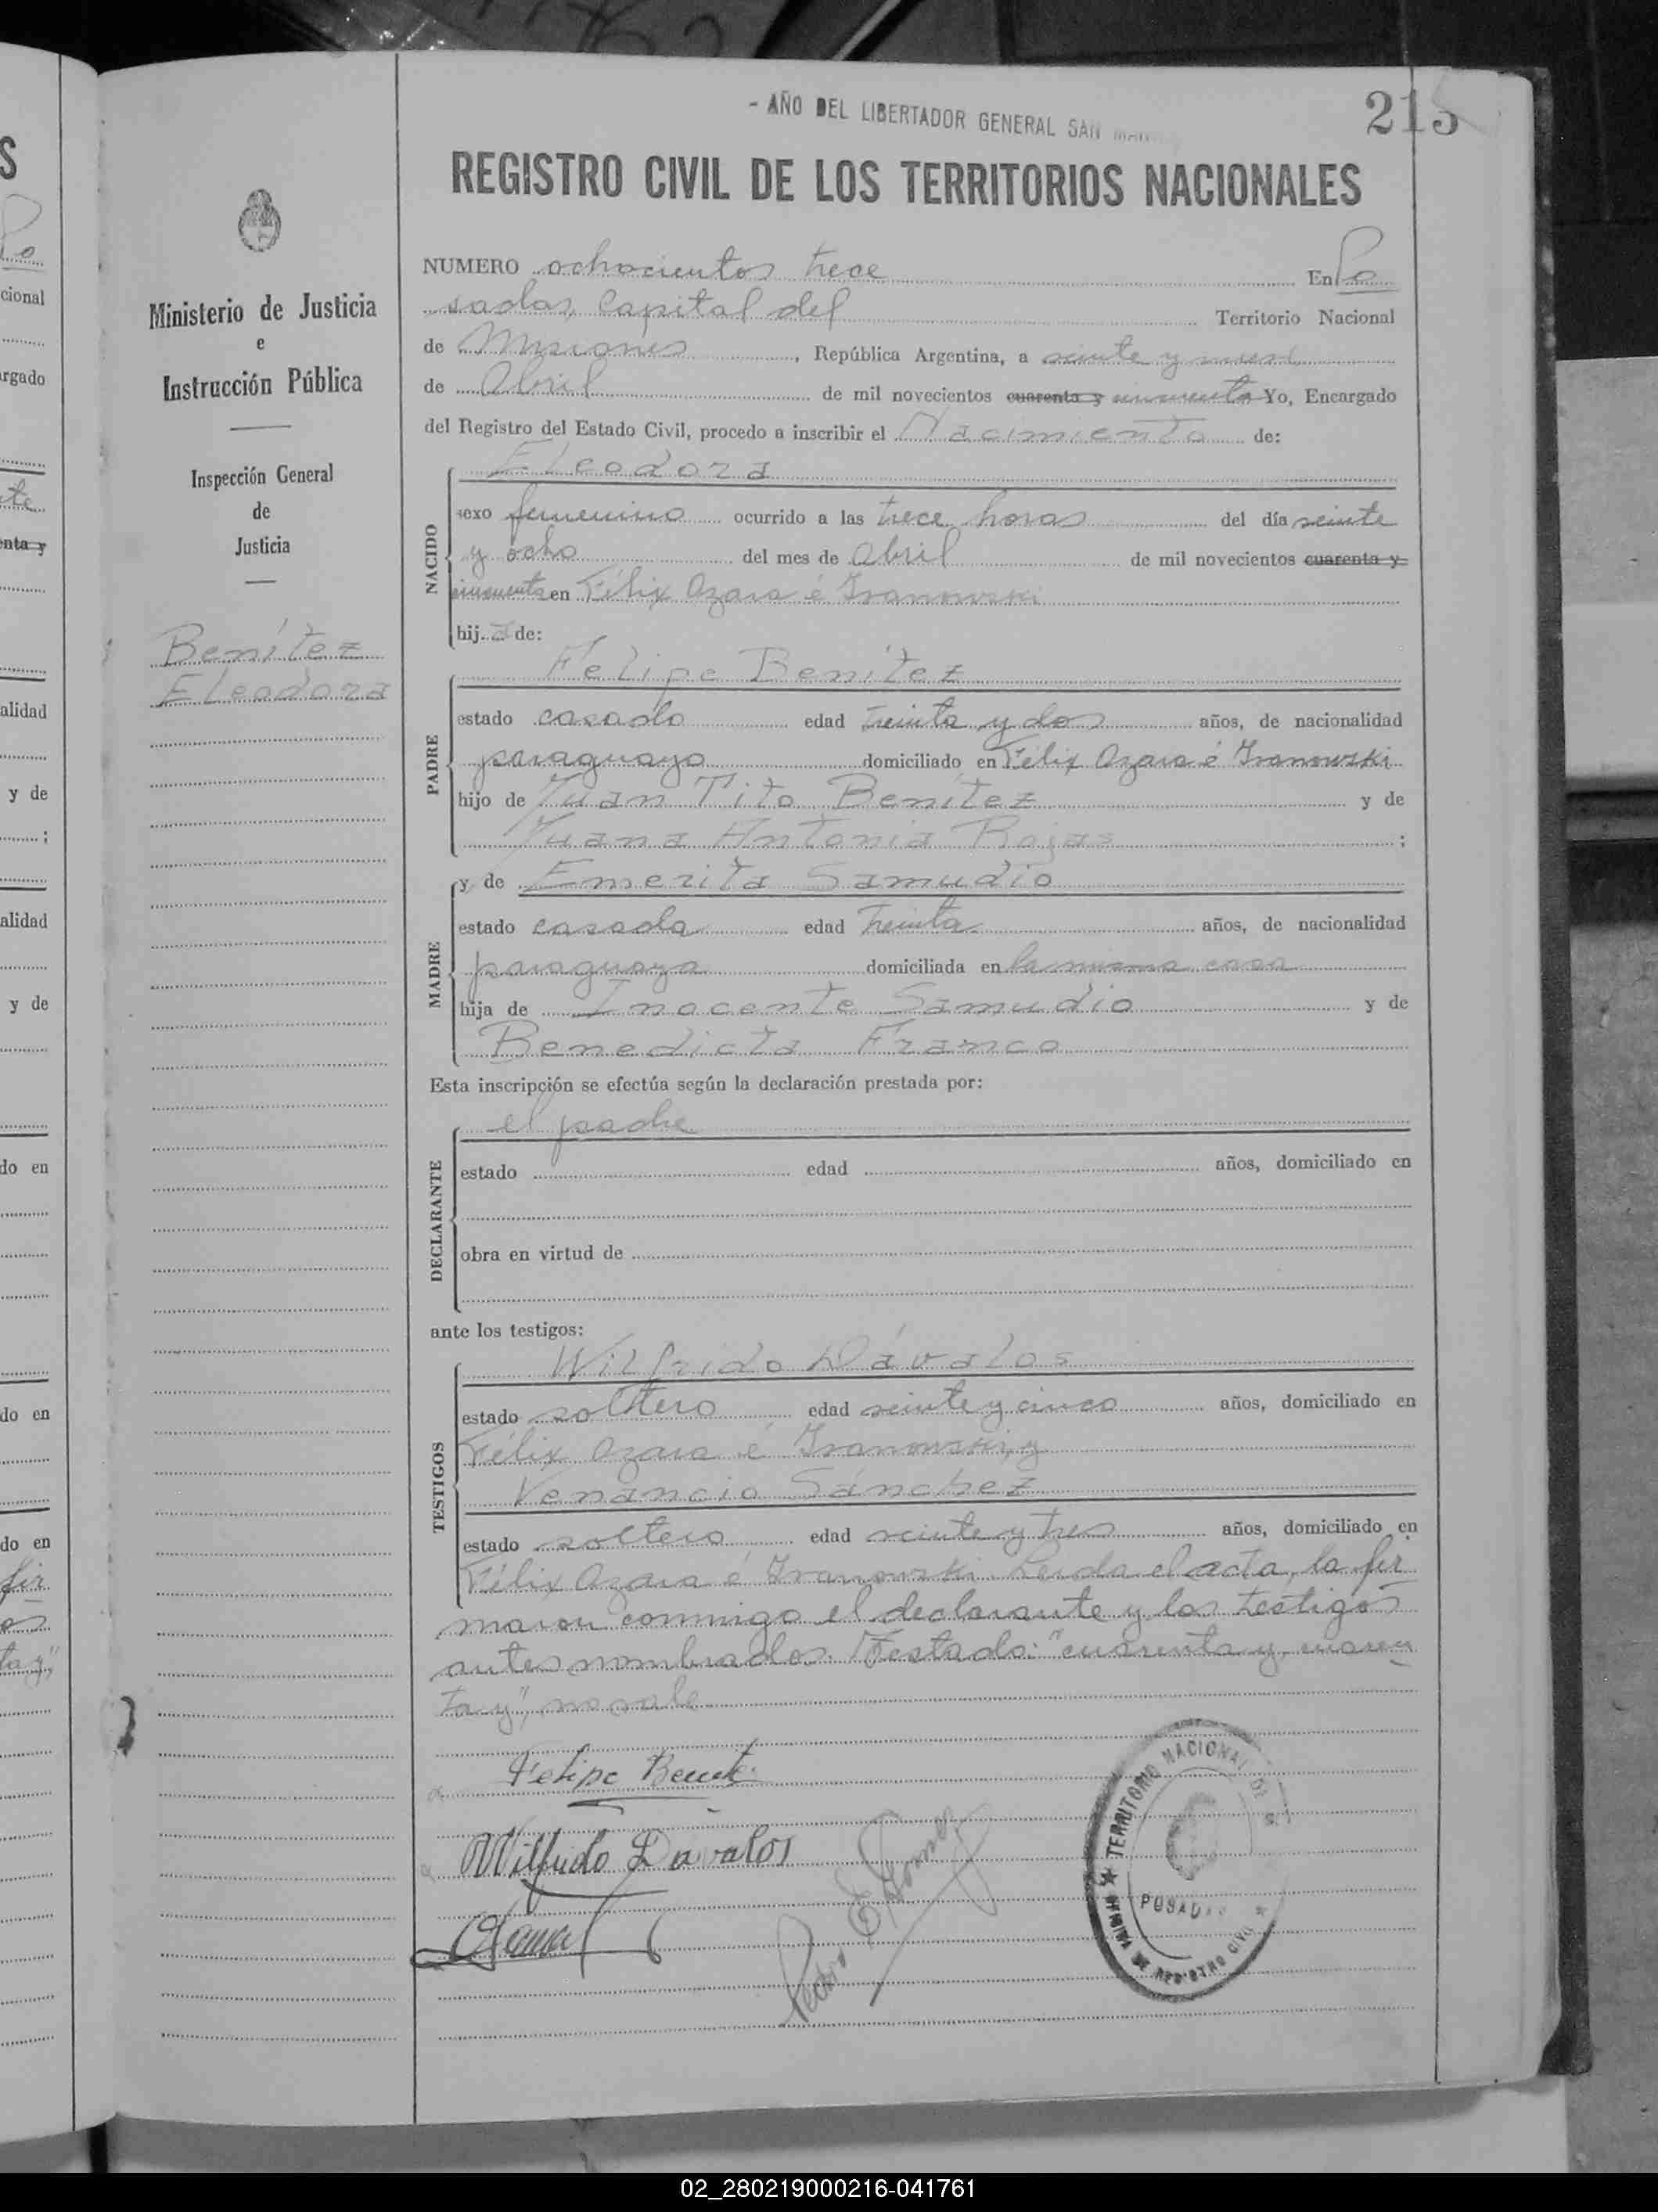 - AÑO DEL LIBERTADOR GENERAL SAN
215
REGISTRO CIVIL DE LOS TERRITORIOS NACIONALES
Ministerio de Justicia
e
Instrucción Pública
Inspección General
de
Justicia
Benítez
Eleodora
NUMERO ochocientos trece En Po
sadas, Capital del Territorio Nacional
de Misiones, República Argentina, a veinte y nueve
de Abril de mil novecientos cuarenta y cincuenta Yo, Encargado
del Registro del Estado Civil, procedo a inscribir el Nacimiento de:
NACIDO
Eleodora
sexo femenino ocurrido a las trece horas del día veinte
y ocho del mes de Abril de mil novecientos cuarenta y
cincuenta en Félix Azara é Ivanowski
hija de:
PADRE
Felipe Benítez
estado casado edad treinta y dos años, de nacionalidad
paraguayo domiciliado en Félix Azara é Ivanowski
hijo de Juan Tito Benítez y de
Juana Antonia Rojas ;
MADRE
y de Emerita Samudio
estado casada edad treinta años, de nacionalidad
paraguaya domiciliada en la misma casa
hija de Inocente Samudio y de
Benedicta Franco
Esta inscripción se efectúa según la declaración prestada por:
DECLARANTE
el padre
estado edad años, domiciliado en
obra en virtud de
ante los testigos:
TESTIGOS
Wilfrido Dávalos
estado soltero edad veinte y cinco años, domiciliado en
Félix Azara é Ivanowski, y
Venancio Sánchez
estado soltero edad veinte y tres años, domiciliado en
Félix Azara é Ivanowski. Leida el acta, la fir
maron conmigo el declarante y los testigos
antes nombrados. Testado: "cuarenta y, cuaren
ta y", no vale.
Felipe Benite
Wilfrido Davalos
Pedro E.
TERRITORIO NACIONAL DE
POSADAS
DE REGISTRO CIVIL
S
cional
rgado
nta y
alidad
y de
;
alidad
y de
do en
do en
do en
fir
os
ta y",
02_280219000216-041761